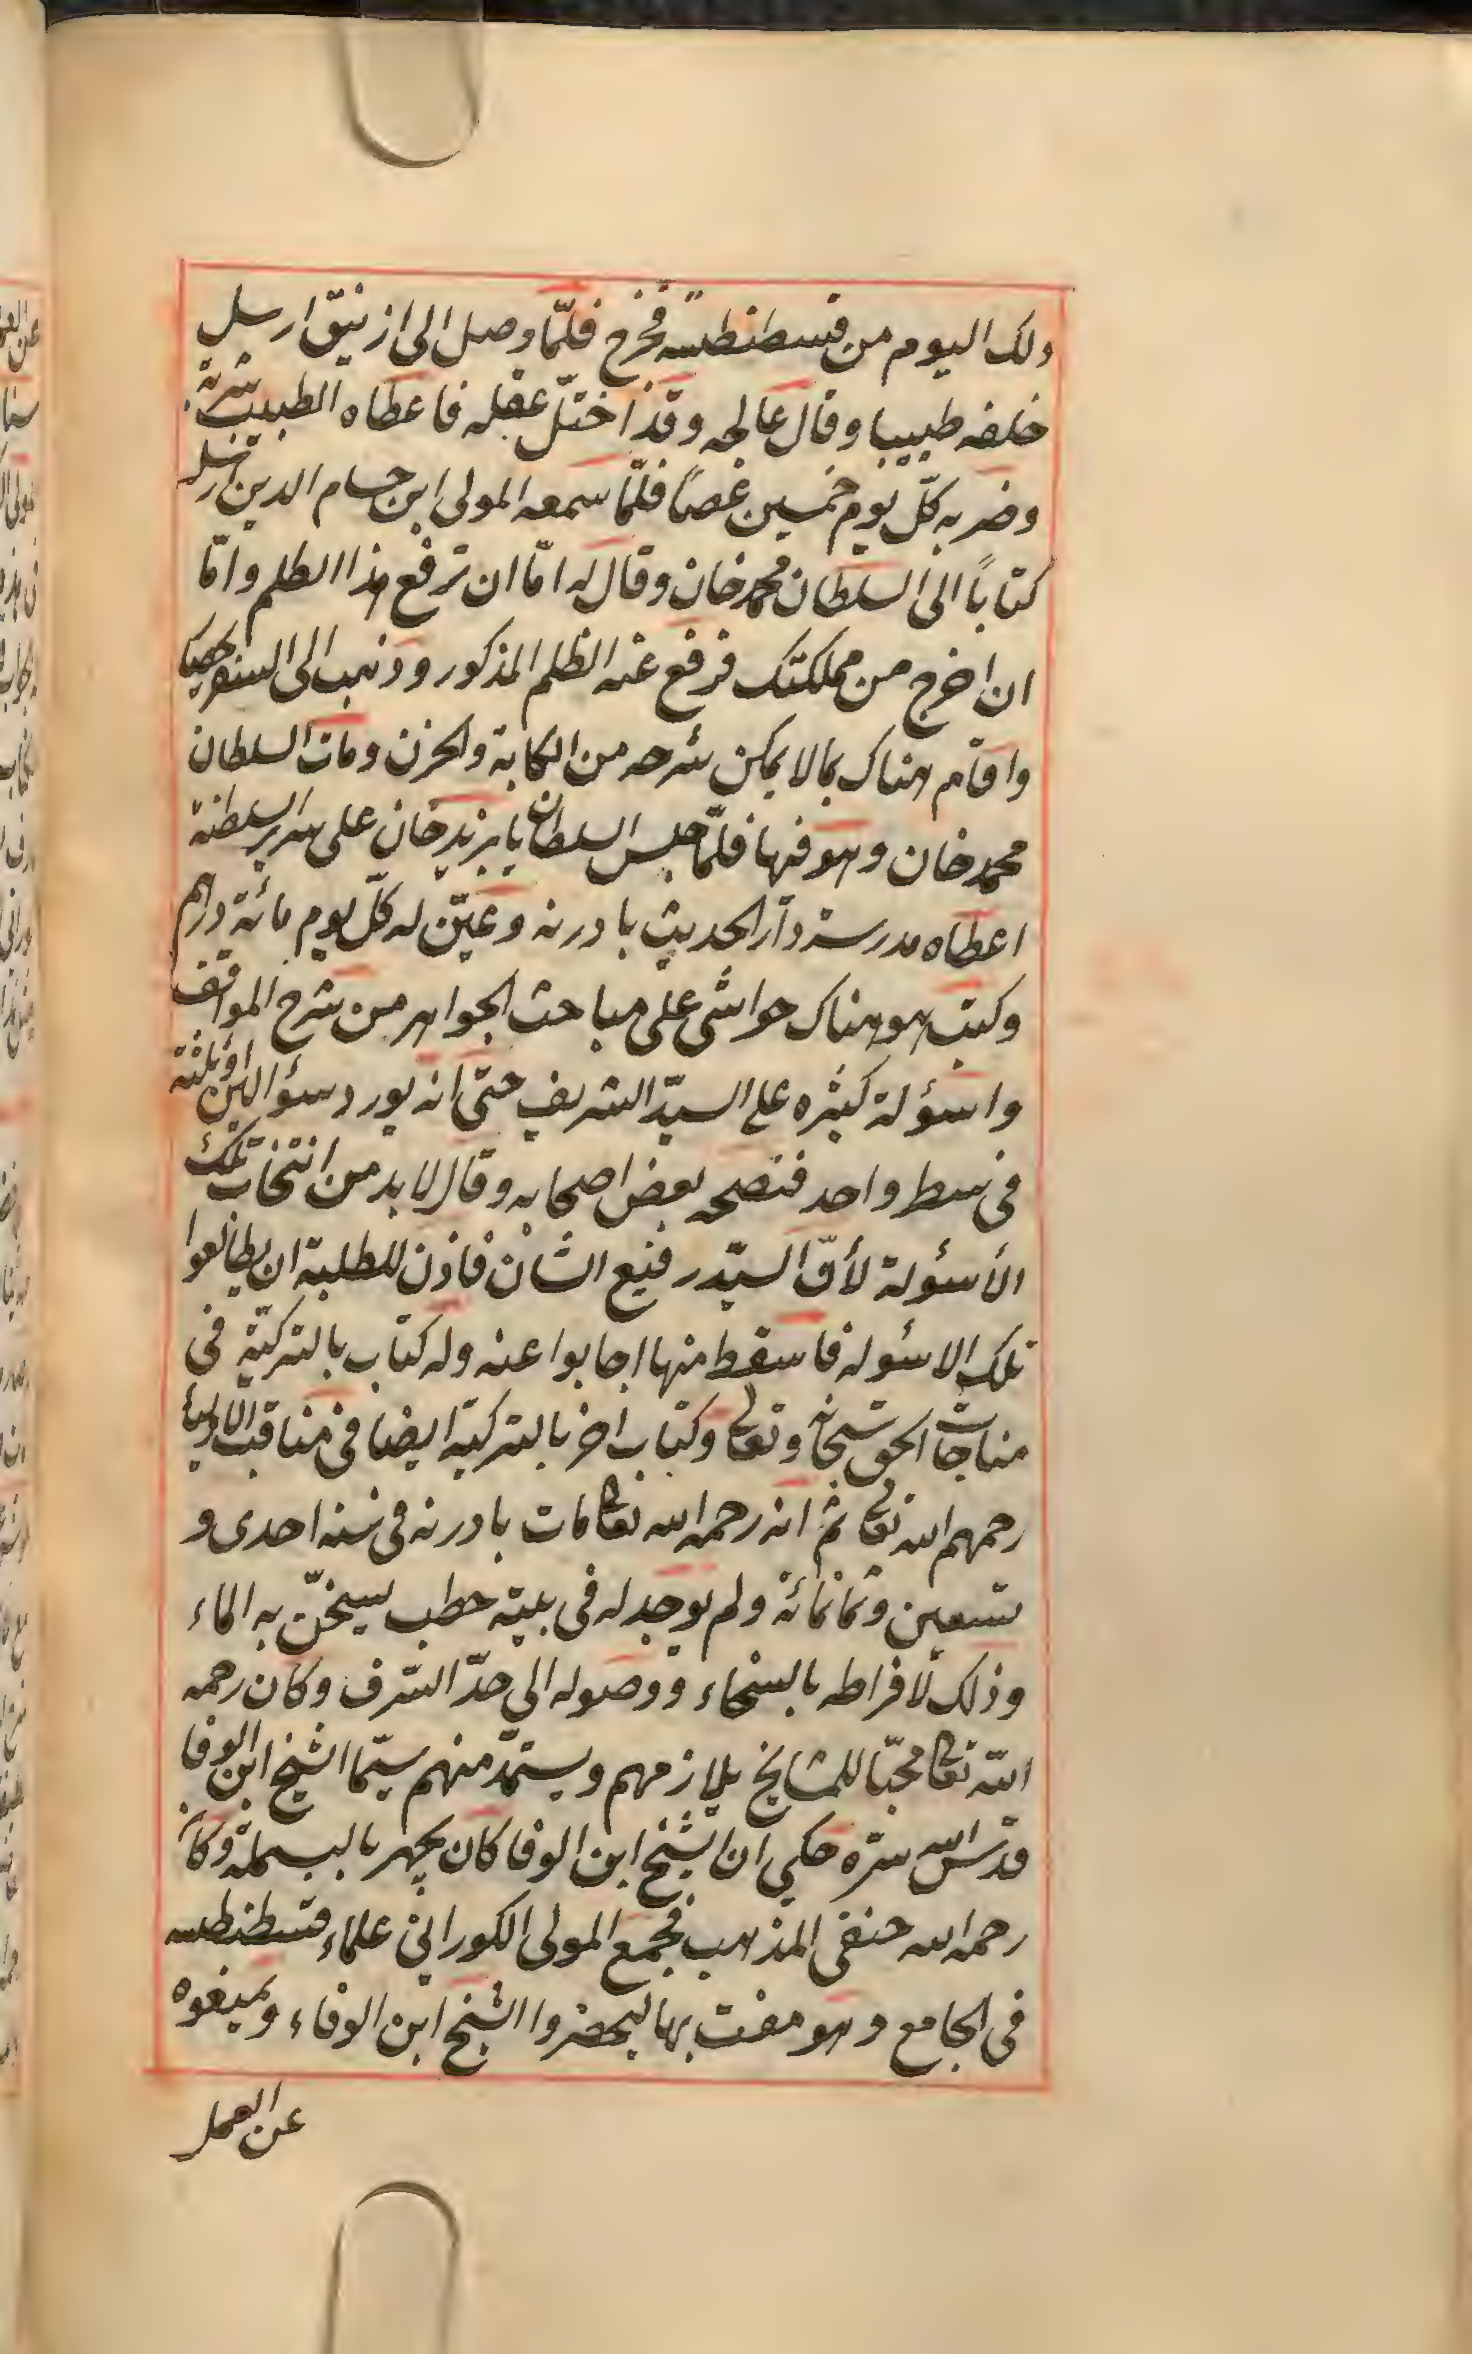 ذلك اليوم من قسطنطينية فخرج فلمّا وصل الى ازنيق ارسل
خلفه طبيبا وقال عالجه وقد اختلّ عقله فاعطاه الطبيب شربة
وضربه كلّ يوم خمسين عصاً فلمّا سمعه المولى ابن حسام الدين ارسل
كتاباً الى السلطان محمد خان وقال له امّا ان ترفع هذا الظلم وامّا
ان اخرج من مملكتك فرفع عنه الظلم المذكور وذهب الى
واقام هناك بما لا يمكن شرحه من الكابة والحزن ومات السلطان
محمد خان وهو فيها فلمّا جلس السلطان بايزيد خان على سرير السلطنة
اعطاه مدرسة دار الحديث بادرنه وعيّن له كلّ يوم مائة درهم
وكتب هو هناك حواشى على مباحث الجواهر من شرح المواقف
واسؤلة كثيره على السيّد الشريف حتى انه يورد سؤالين او ثلثة
فى سطر واحد فنصحه بعض اصحابه وقال لا بد من انتخاب تلك
الأسؤلة لأنّ السيّد رفيع الشان فاذن للطلبة ان يطالعوا
تلك الاسئوله فاسقط منها اجابوا عنه وله كتاب بالتركيّة فى
مناجات الحق سبحانه وتعالى وكتاب اخر بالتركيّة ايضا فى مناقب الاولياء
رحمهم الله تعالى ثم انه رحمه الله تعالى مات بادرنه فى سنه احدى و
تسعين وثمانمائة ولم يوجد له فى بيته حطب يسخّن به الماء
وذلك لافراطه بالسخاء ووصوله الى حدّ السّرف وكان رحمه
الله تعالى محبّا للمشايخ يلازمهم ويستمدّ منهم سيّما الشيخ ابن الوفا
قدّس الله سرّه حكى ان الشيخ ابن الوفا كان يجهر بالبسملة وكان
رحمه الله حنفى المذهب فجمع المولى الكورانى علماء قسطنطينية
فى الجامع وهو مفت بها ليحضروا الشيخ ابن الوفاء ويمنعوه
عن العمل